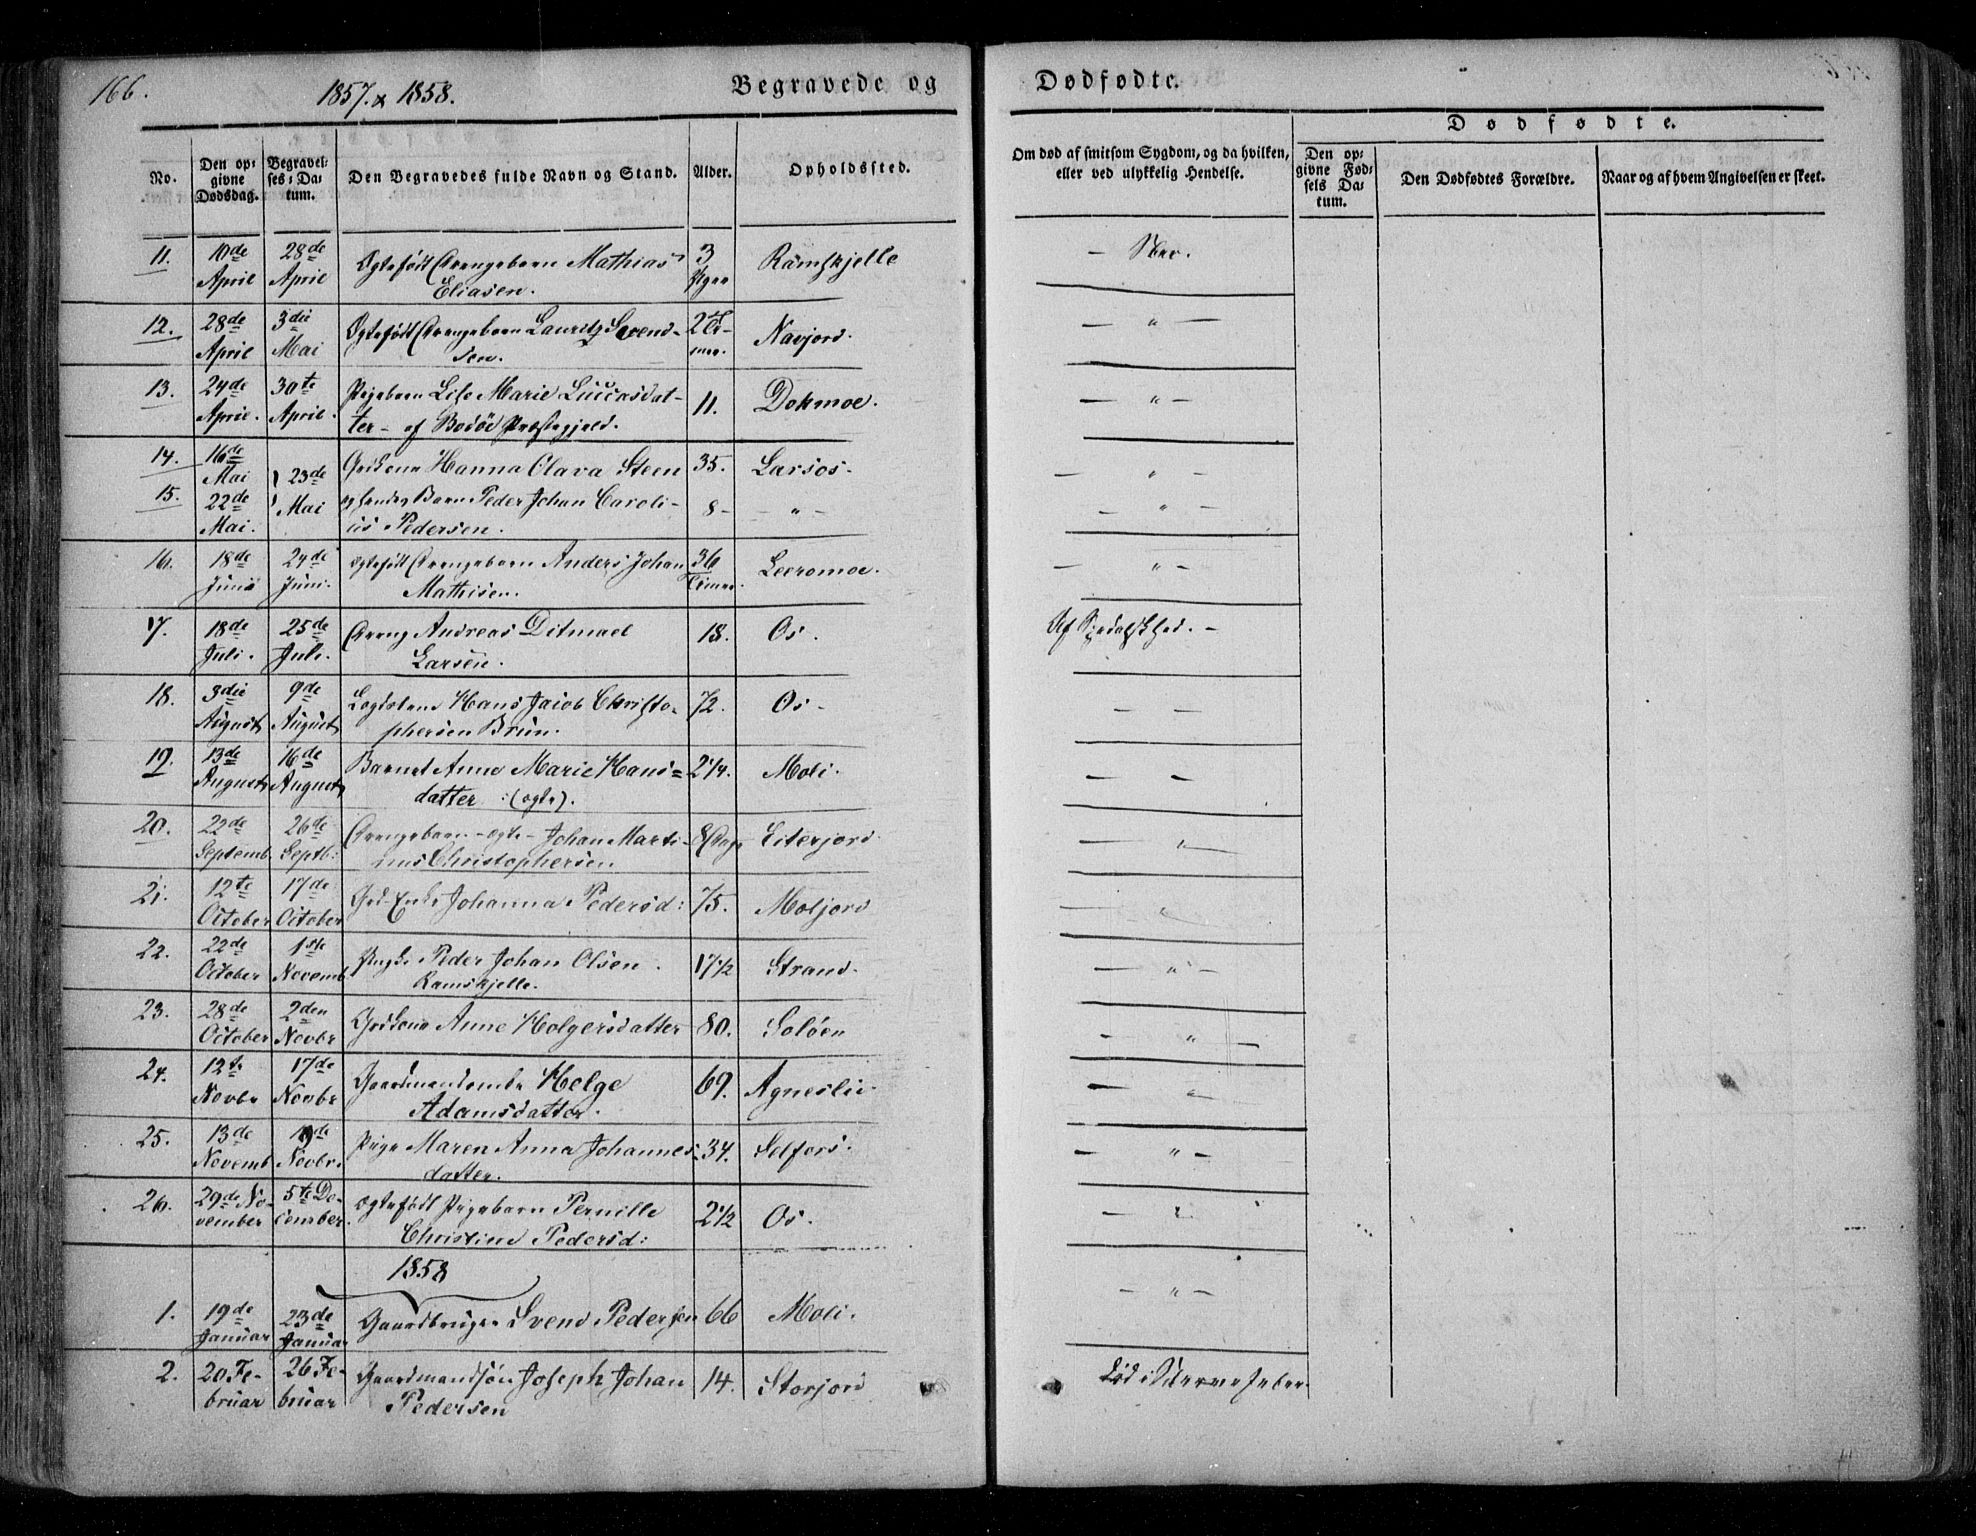 166.
1857. & 1858.
Begravede og
Dødfødte.
No.
Den opgivne Dødsdag.
Begravelses-Datum.
Den Begravedes fulde Navn og Stand.
Alder.
Opholdssted.
Om død af smitsom Sygdom, og da hvilken, eller ved ulykkelig Hendelse.
Dødfødte.
Den opgivne Fødsels Datum.
Den Dødfødtes Forældre.
Naar og af hvem Angivelsen er skeet.
11. 10de April 28de April Ægtefødt Drengebarn Mathias Eliasen. 3 Ramskjelle
12. 28de April 3die Mai Ægtefødt Drengebarn Lauritz Svendsen. 2 Timer. Navjord.
13. 24de April. 30te April. Pigebarn Marie Luccasdatter - af Bodöe Præstegjeld. 11. Dokmoe.
14. 16de Mai 23de Mai Hanna Olava Steen 35. Larsos.
15. 22de Mai. og hendes Barn Peder Johan Carolius Pedersen. 8 - - " -
16. 18de Junii 24de Juni. Ægtefødt Drengebarn Anders Johan Mathisen. 36 Timer. Leeromoe.
17. 18de Juli. 25de Juli. Dreng Andreas Ditmael Larsen. 18. Os. Af Spedalskhed. -
18. 3die August 9de August Hans Jacob Christophersen Brun. 72. Os -
19. 13de August 16de August Barnet Anne Marie Hansdatter :(ægte). 2 1/4. Moli.
20. 22de Septemb. 26de Septb: Drengebarn - ægte - Johan Martinus Christophersen 8 Dage Eiterjord.
21. 12te October 17de October Johanna Pedersd: 75. Moljord
22. 22de October 1ste Novemb Peder Johan Olsen Ramskjelle. 17 1/2 Strand.
23. 28de October 2den Novbr Anne Holgersdatter 80. Soløen
24. 12te Novbr 17de Novbr Gaardmandsenke Helge Adamsdatter. 69. Agneslii
25. 13de Novemb 19de Novbr. Pige Maren Anna Johannesdatter. 34. Selfors.
26. 29de November 5te December. Ægtefødt Pigebarn Pernille Christine Pedersd: 2 1/2 Os.
1858
1. 19de Januar 23de Januar Gaardbruger Svend Pedersen 66 Moli.
2. 20 Februar 26 Februar Gaardmandsøn Joseph Johan Pedersen 14. Storjord